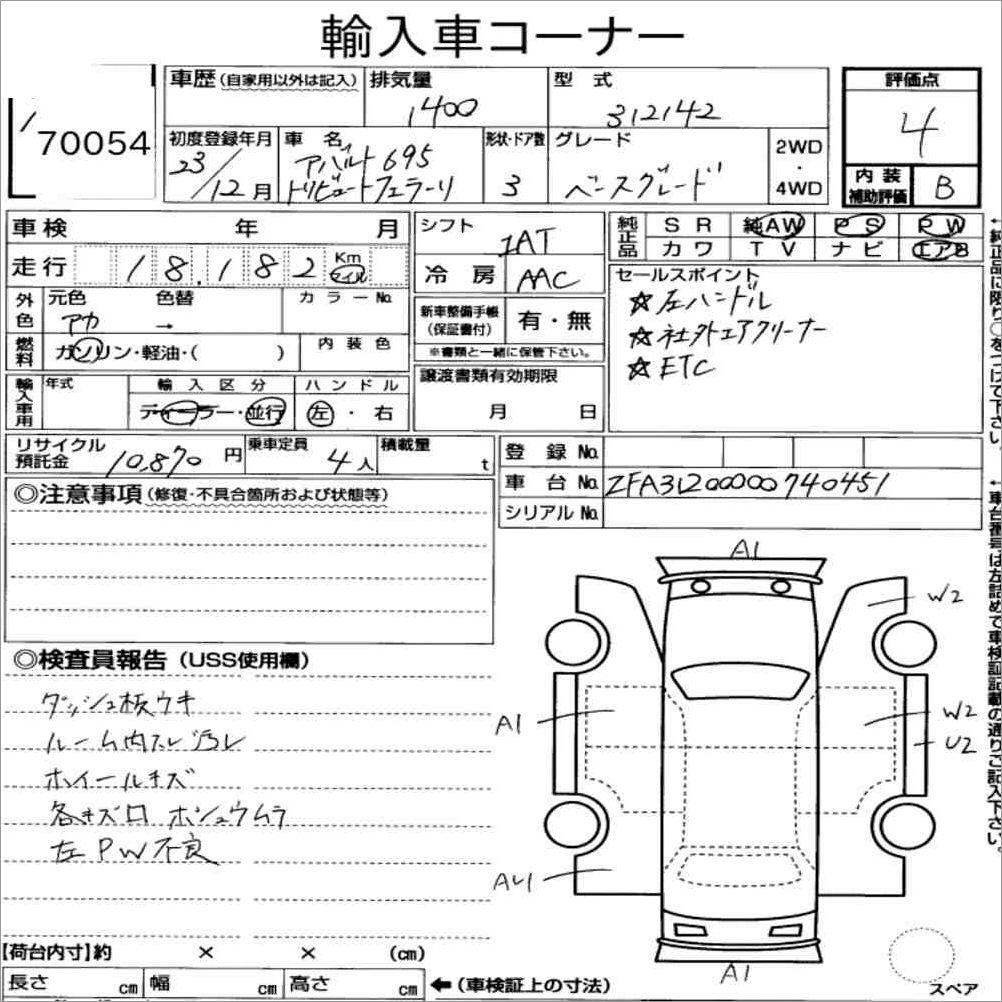 輸入車コーナー
70054
車歴 (自家用以外は記入)
排気量
1400
型 式
312142
評価点
4
初度登録年月
23/12月
車 名
アバルト695
トリビュートフェラーリ
形状・ドア数
3
グレード
ベースグレード
2WD
・
4WD
内 装
補助評価
B
車検 年 月
走行 18,182 Km マイル
シフト
IAT
冷 房
AAC
純正品
S R 純AW P S P W
カワ T V ナビ エアB
セールスポイント
☆左ハンドル
☆社外エアクリーナー
☆ETC
外色
元色 色替
アカ →
カラーNo.
燃料
ガソリン・軽油・( )
内 装 色
新車整備手帳
(保証書付)
有・無
※書類と一緒に保管下さい。
輸入車用
年式
輸 入 区 分
ディーラー・並行
ハ ン ド ル
左・右
譲渡書類有効期限
月 日
リサイクル
預託金
10,870 円
乗車定員
4人
積載量
t
登 録 No.
車 台 No. ZFA31200000740451
シリアル No.
◎注意事項(修復・不具合箇所および状態等)
◎検査員報告(USS使用欄)
ダッシュ板ウキ
ルーム内スレ汚レ
ホイールキズ
各キズロ ボシュウムラ
左PW不良
A1
W2
A1
W2
U2
AU1
A1
スペア
【荷台内寸】約 × × (cm)
長さ cm 幅 cm 高さ cm ←(車検証上の寸法)
←純正品に限り○をつけて下さい。
←車台番号は左詰めで車検証記載の通りご記入下さい。